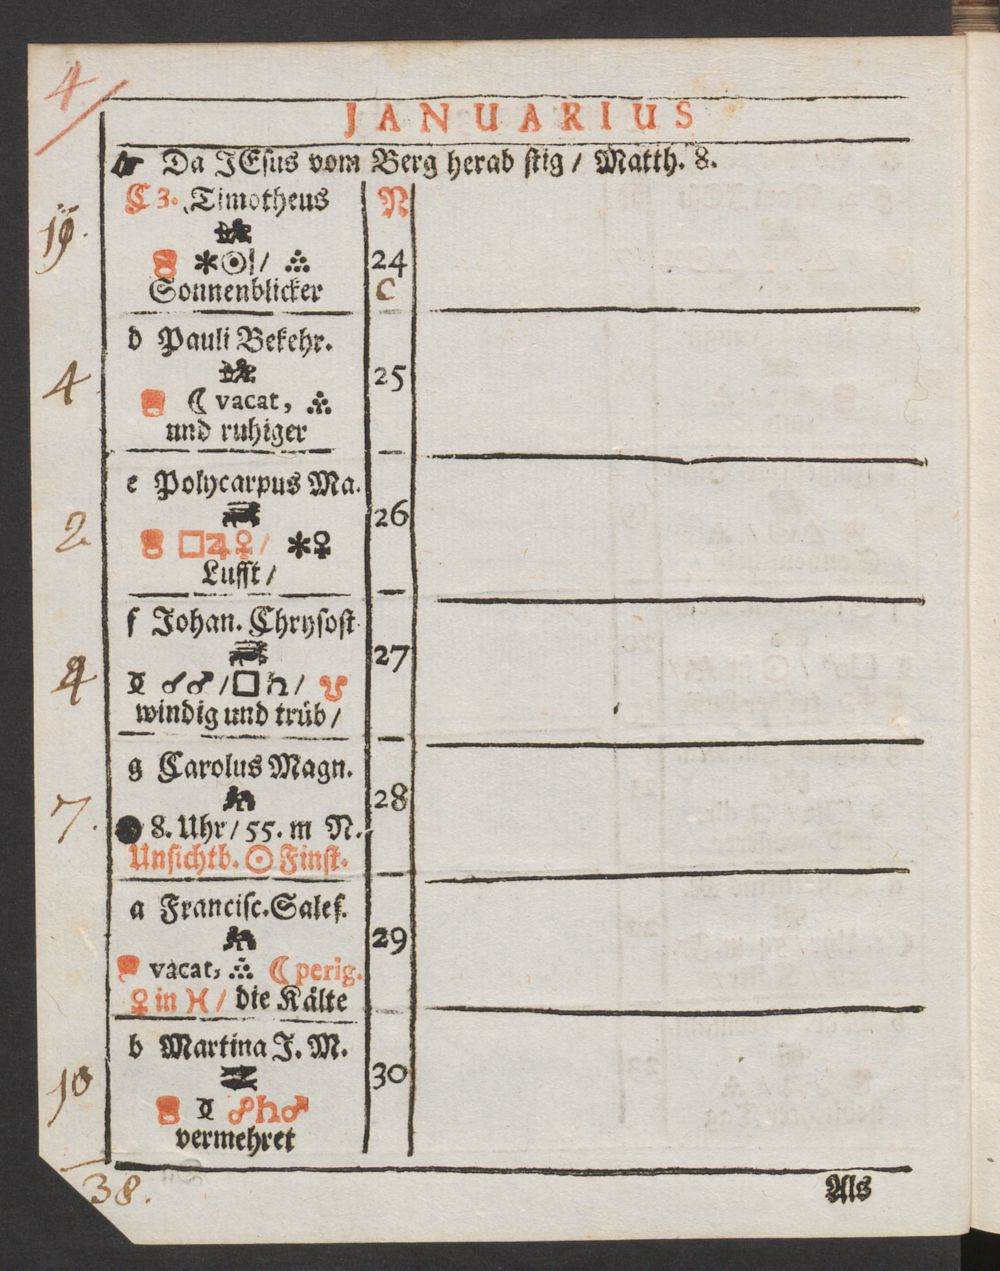 4
JANUARIUS
Da JEsus vom Berg herab stig / Matth. 8.
C 3. Timotheus N
☍ ✱☉ / ⛬ 24
Sonnenblicker C
d Pauli Bekehr.
25
4
☾ vacat, ⛬
und ruhiger
e Polycarpus Ma.
26
2
□♃♀ / ✱♀
Lufft /
f Johan. Chrysost.
27
4
☌♂ / □♄ / ☋
windig und trüb /
g Carolus Magn.
28
7.
● 8. Uhr / 55. m N.
Unsichtb. ☉ Finst.
a Francisc. Sales.
29
vacat, ⛬ ☾ perig.
♀ in ♓ / die Kälte
b Martina J. M.
30
10
☍♄♂
vermehret
38.
Als